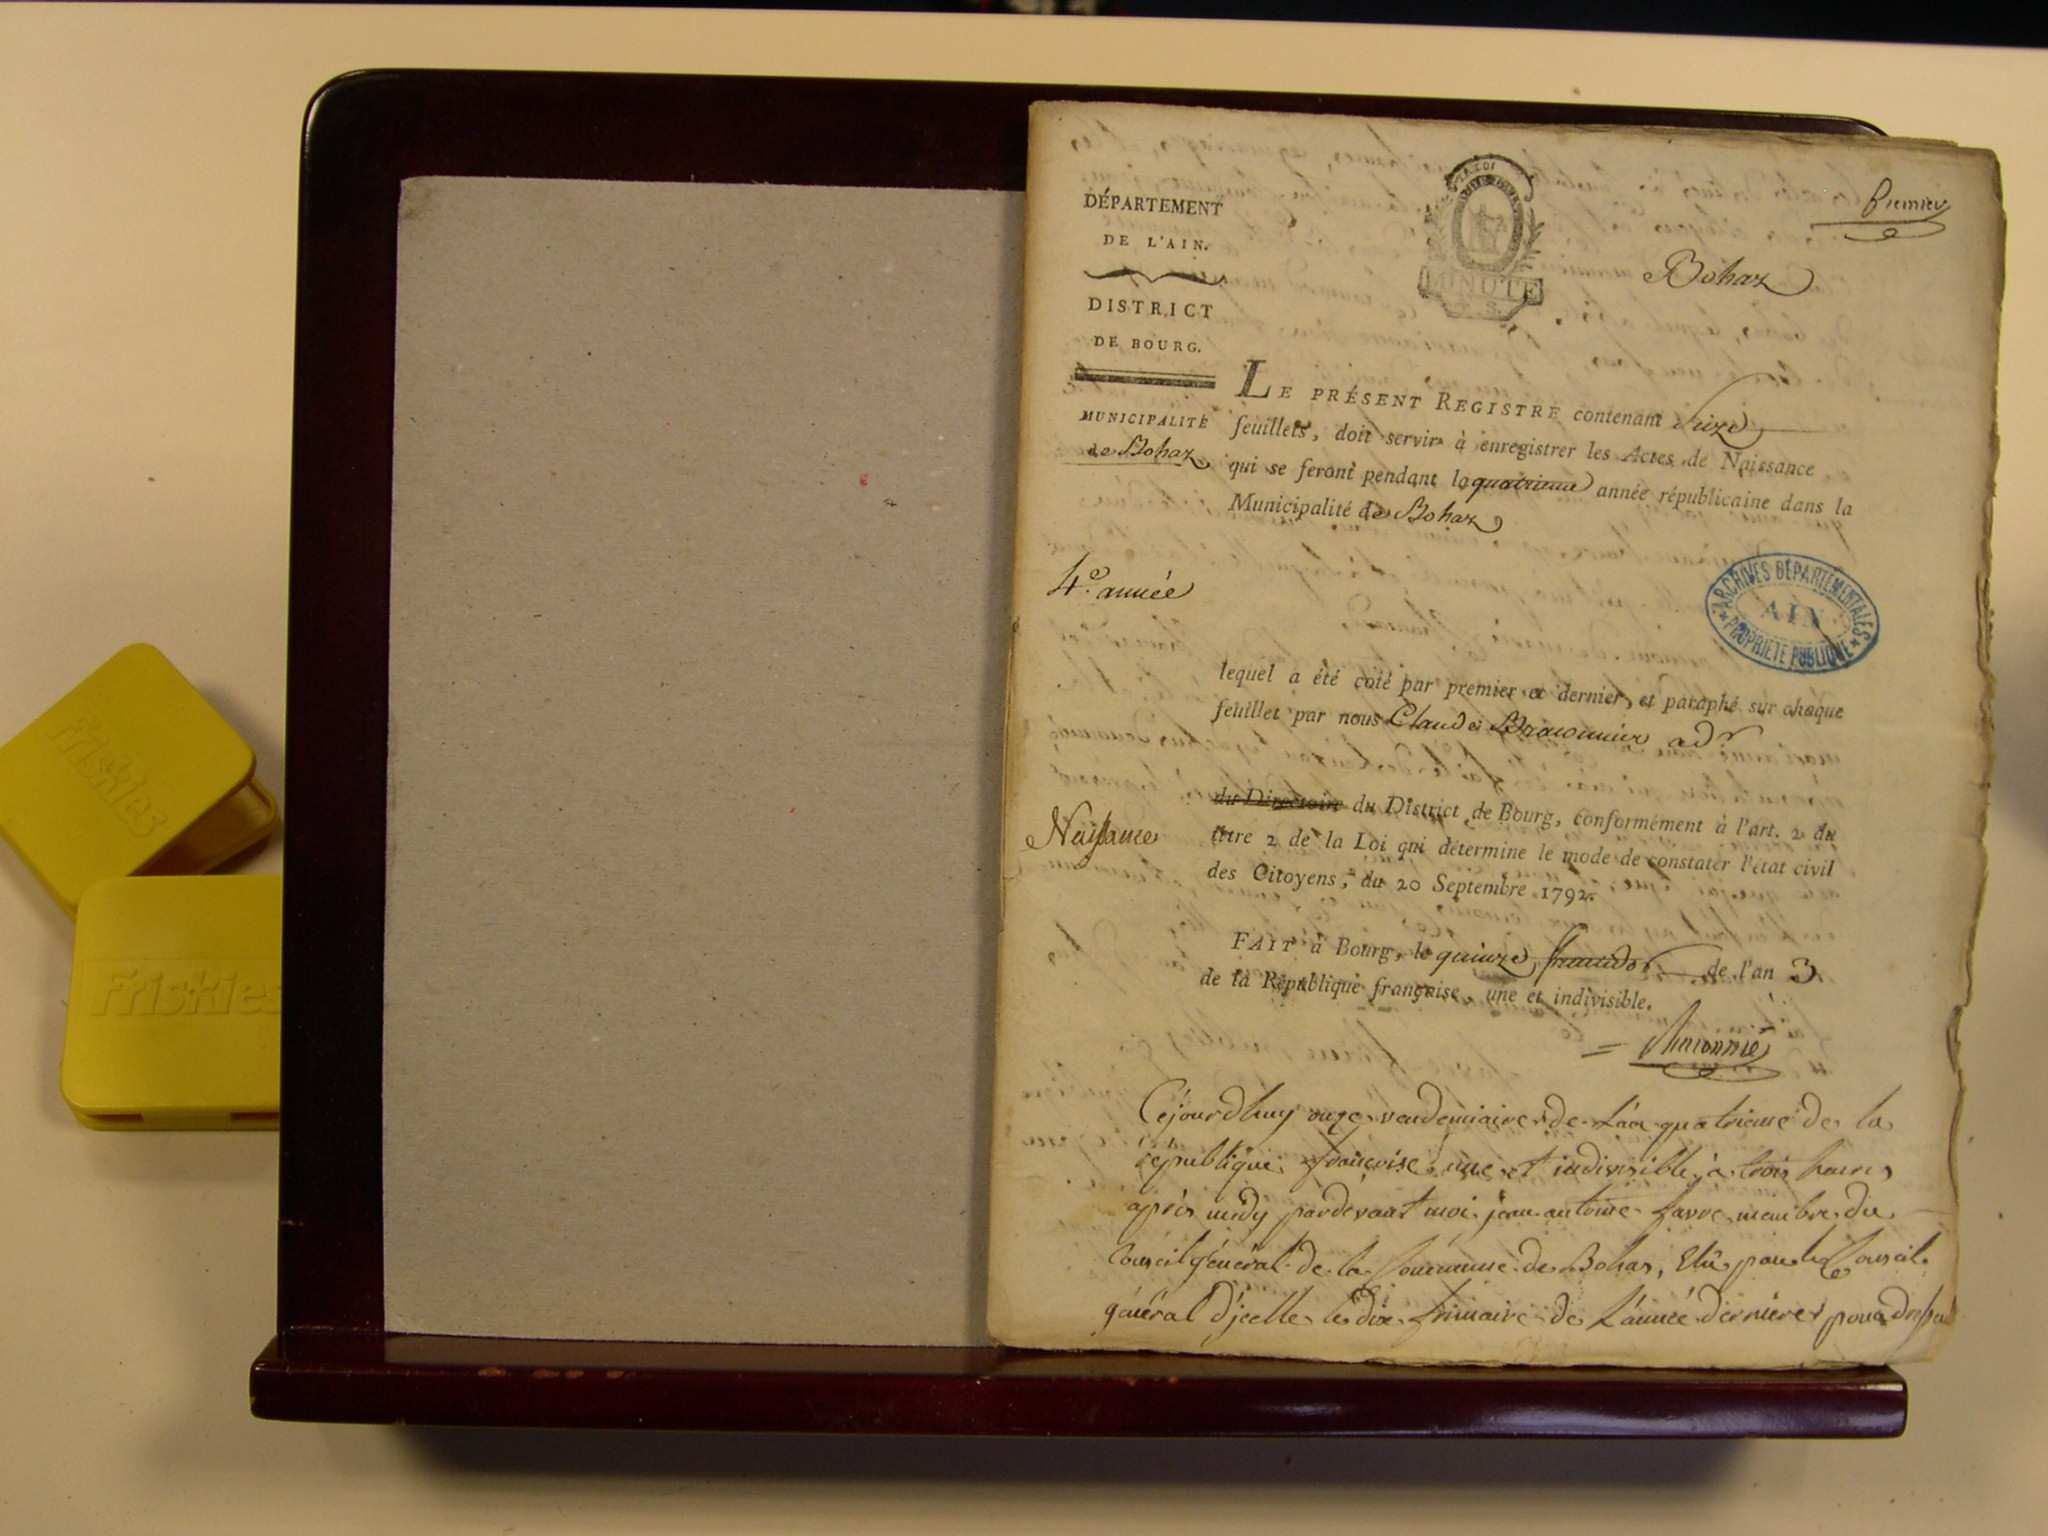 Friskies
Friskies
DÉPARTEMENT
DE L'AIN.
DISTRICT
DE BOURG.
MUNICIPALITÉ
de Bohaz
4.e année
Naissance
LA LOI
MINUTE
premier
Bohaz
LE PRÉSENT REGISTRE contenant seize
feuillets, doit servir à enregistrer les Actes de Naissance
qui se feront pendant la quatrieme année républicaine dans la
Municipalité de Bohaz
ARCHIVES DÉPARTEMENTALES
AIN
PROPRIÉTÉ PUBLIQUE
lequel a été coté par premier et dernier, et paraphé sur chaque
feuillet par nous Claude adr
du Directoire du District de Bourg, conformément à l'art. 2 du
titre 2 de la Loi qui détermine le mode de constater l'état civil
des Citoyens, du 20 Septembre 1792.
FAIT à Bourg, le quinze de l'an 3
de la République française, une et indivisible.
Cejourdhuy onze vendemiaire de L'an quatrieme de la
république françoise une et indivisible, à trois heures
après midy pardevant moi jean antoine favre membre du
Conseil général de la Commune de Bohas, Elû par le Conseil
général d'jcelle le dix frimaire de L'année derniere pour